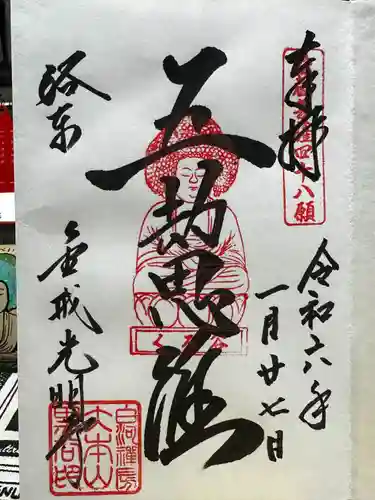 奉拝
四十八願
令和六年
一月廿七日
五劫思惟
洛東
金戒光明寺
白河禅房
大本山
黒谷印